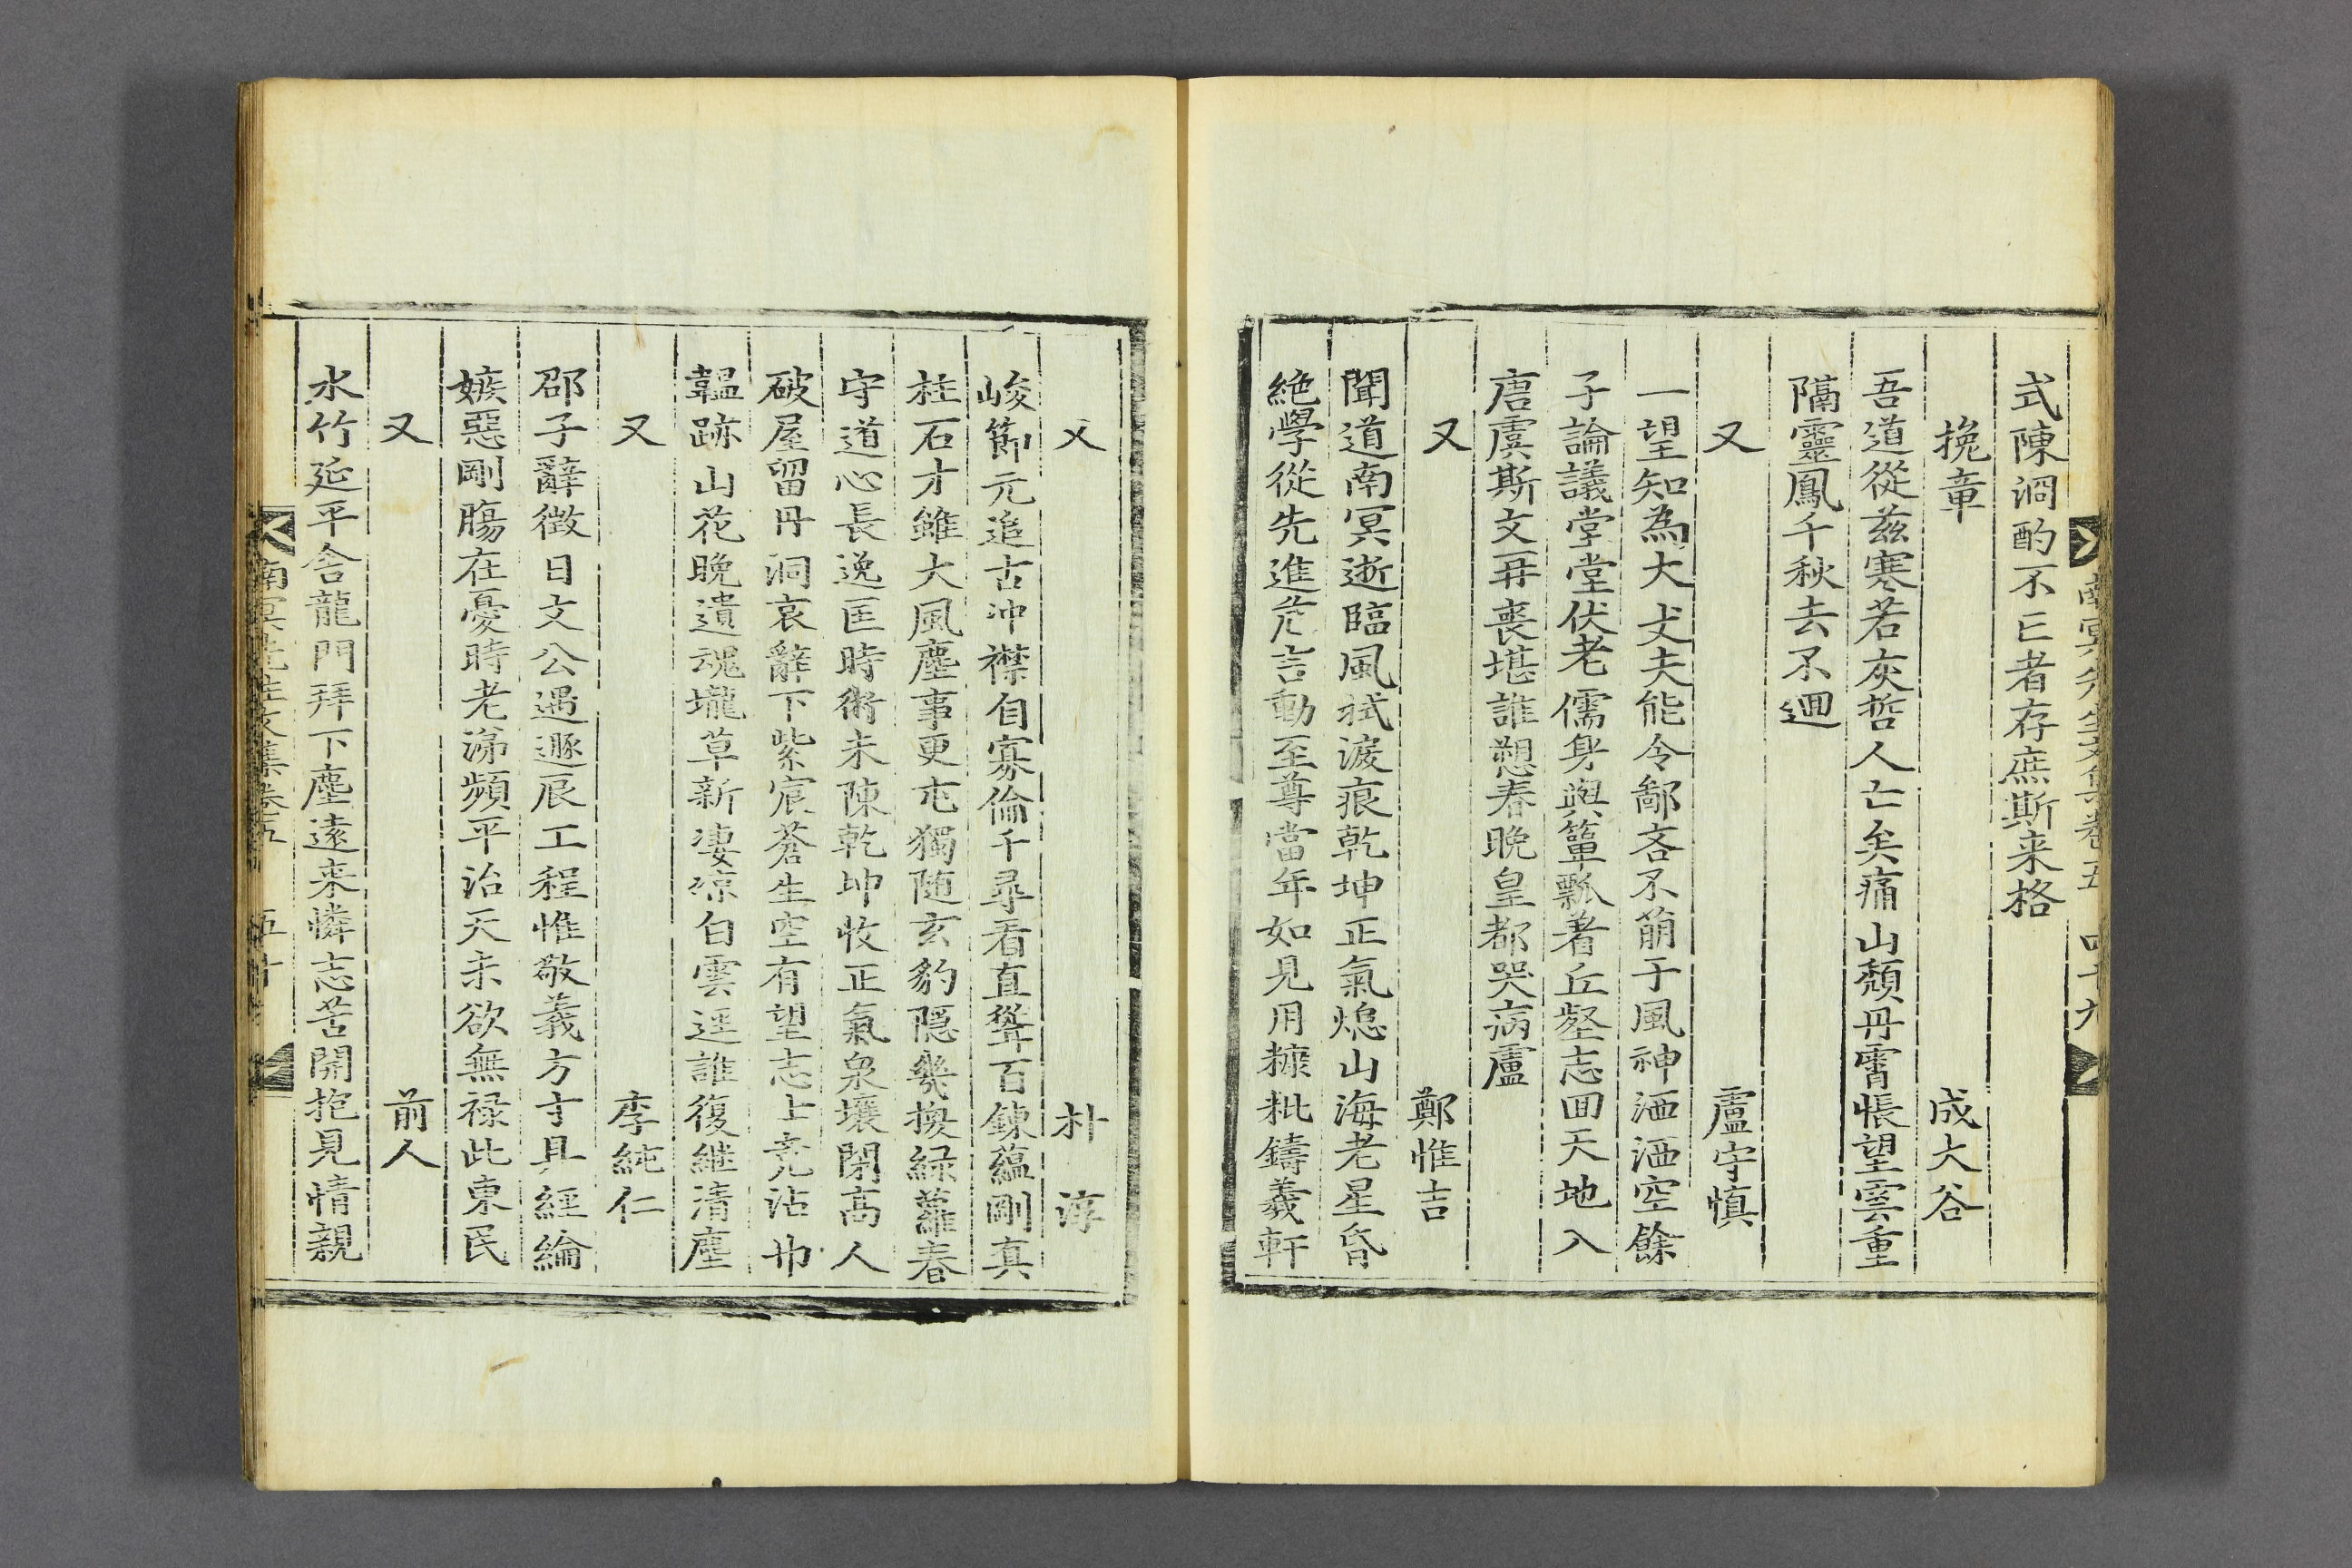 南冥先生文集卷五 四十九
式陳洞酌不亡者存庶斯来格
挽章 成大谷
吾道從兹寒若灰哲人亡矣痛山頹丹霄悵望雲重
隔靈鳳千秋去不迴
又 盧守慎
一望知為大丈夫能令鄙吝不萠于風神洒洒空餘
子論議堂堂伏老儒身與簞瓢着丘壑志回天地入
唐虞斯文再喪堪誰愬春晩皇都哭病盧
又 鄭惟吉
聞道南冥逝臨風拭淚痕乾坤正氣熄山海老星昏
絶學從先進危言動至尊當年如見用糠粃鑄羲軒
又 朴淳
峻節元追古冲襟自寡倫千尋看直聳百鍊蘊剛真
柱石才雖大風塵事更屯獨随玄豹隠幾換緑蘿春
守道心長逸匡時術未陳乾坤收正氣泉壤閉高人
破屋留丹洞哀辭下紫宸蒼生空有望志士竞沾巾
韞跡山花晩遺魂壠草新凄凉白雲逕誰復継清塵
又 李純仁
邵子辭徴日文公遇遯辰工程惟敬義方寸具經綸
嫉惡剛膓在憂時老涕頻平治天未欲無禄此東民
又 前人
水竹延平舎龍門拜下塵遠来憐志苦開抱見情親
南冥先生文集卷五 五十